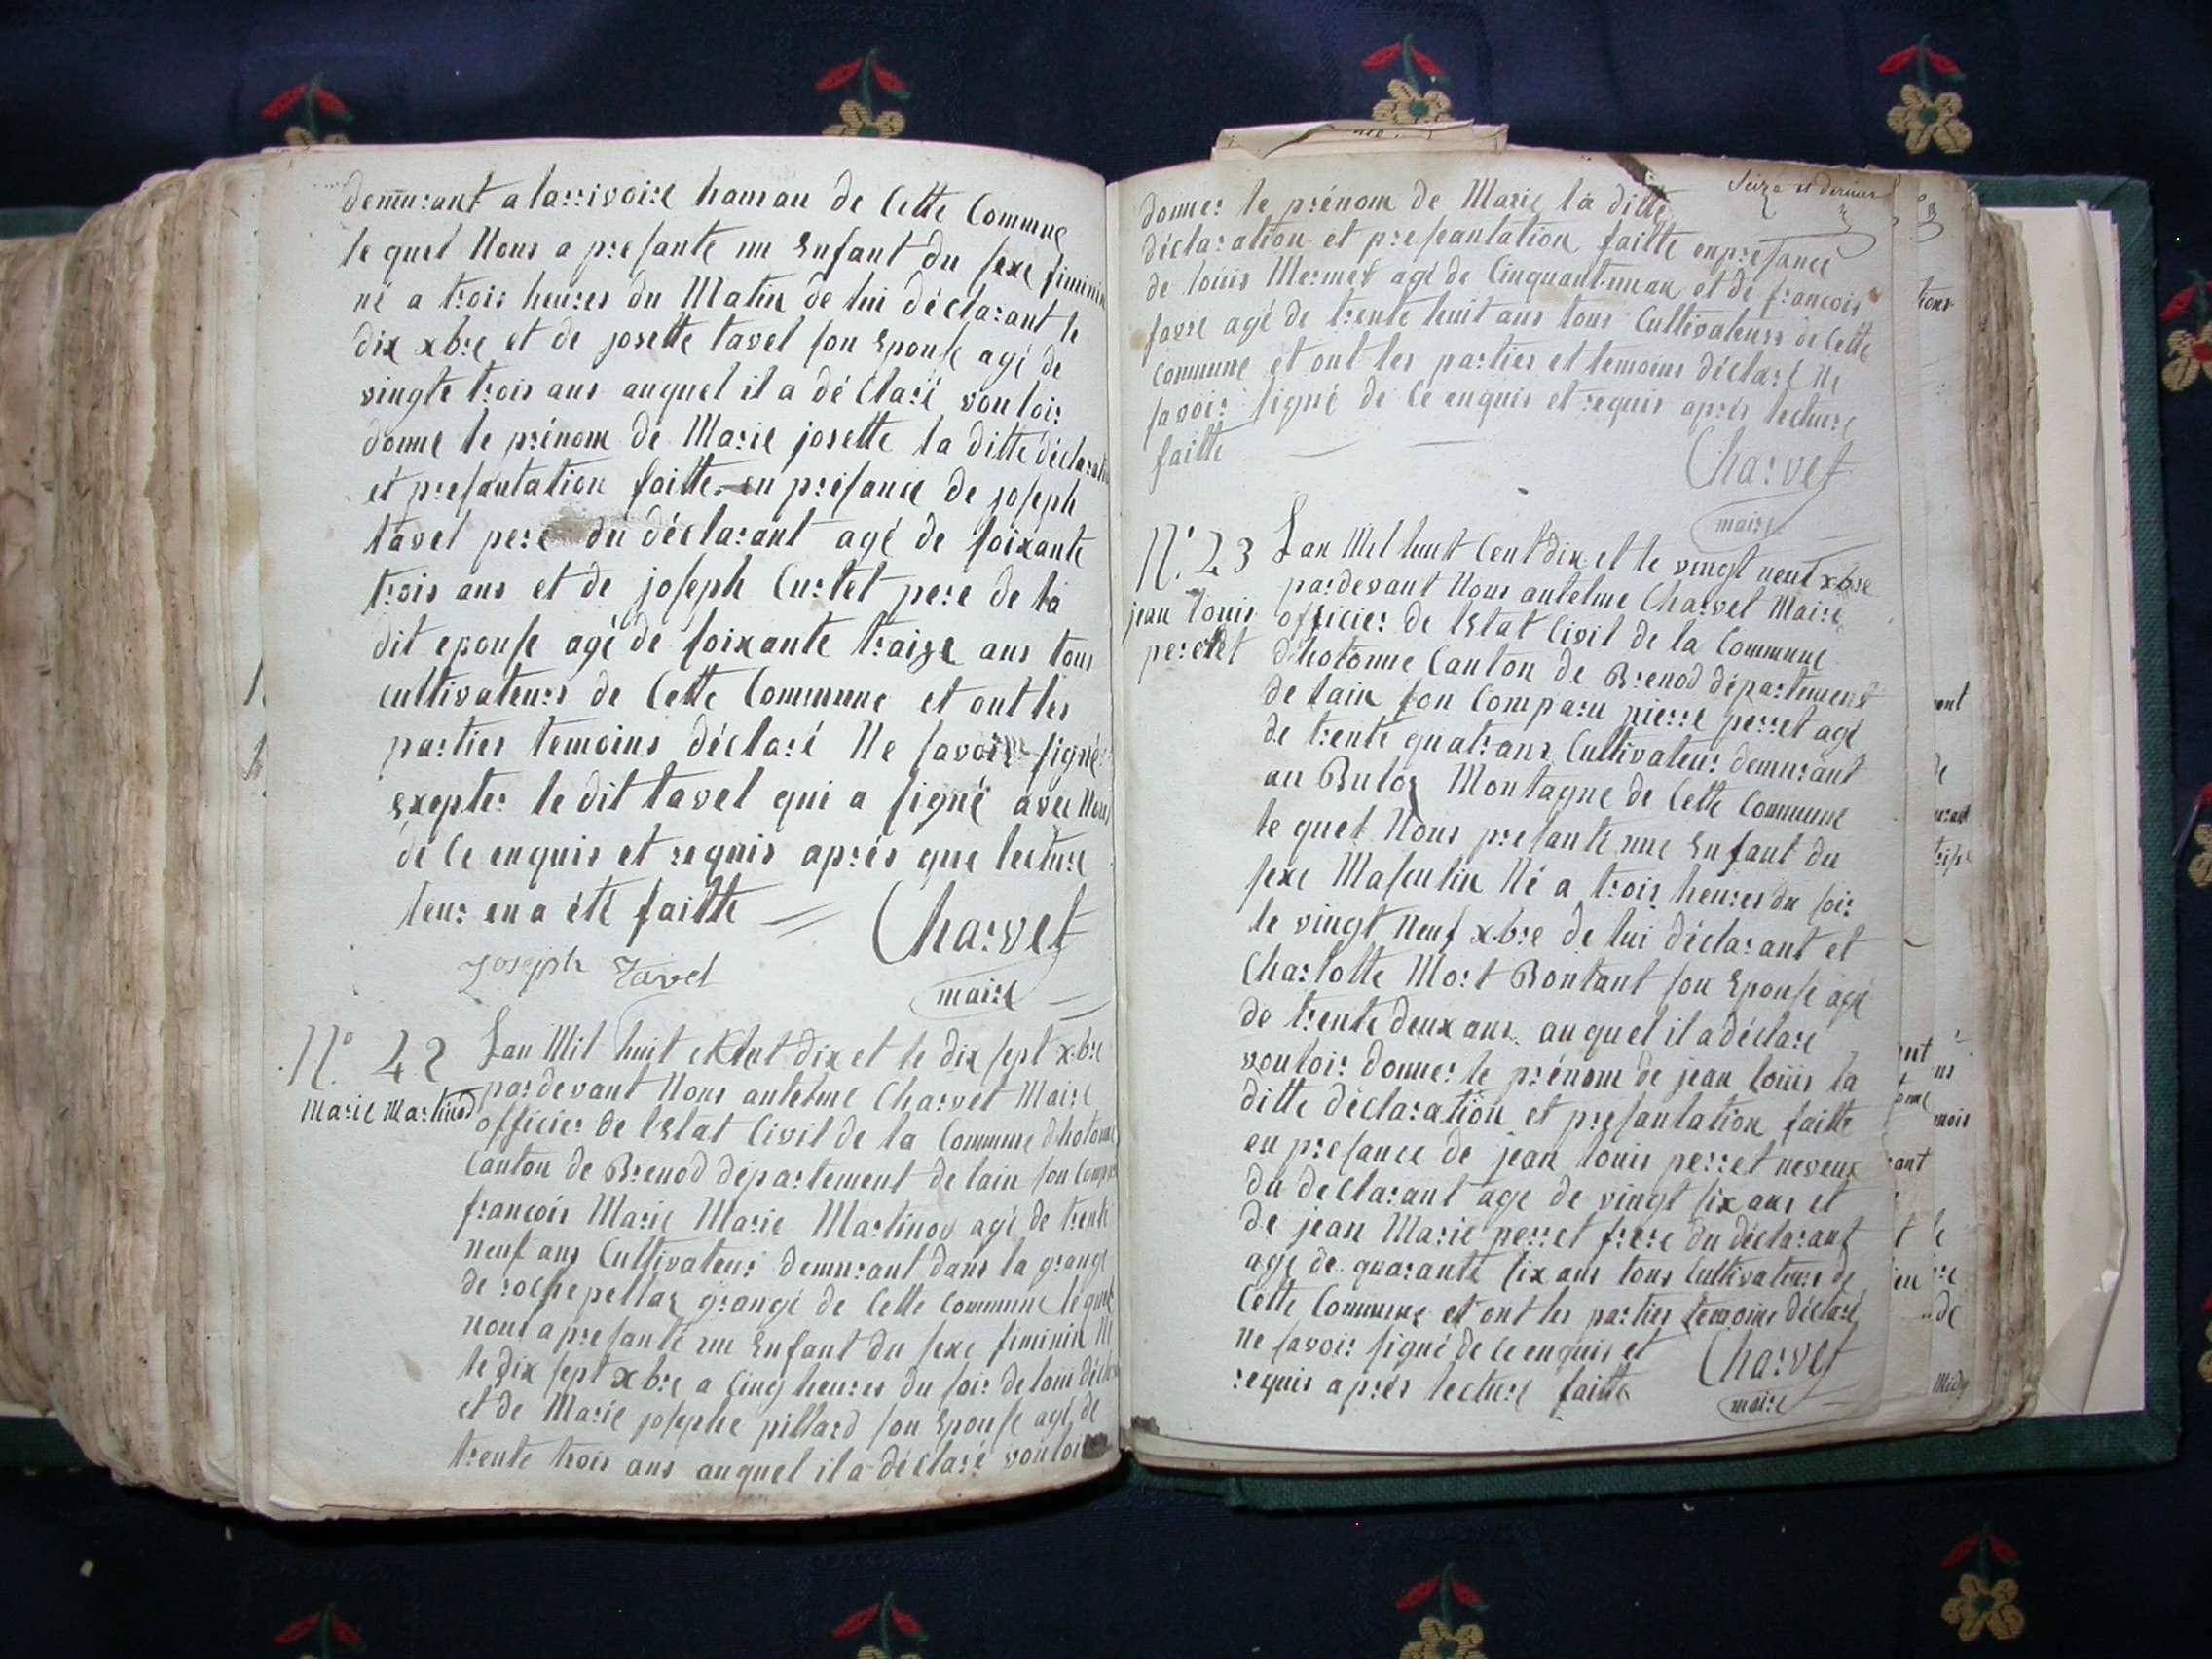 demurant a larrivoire hamau de Cette Commune
le quel Nous a presanté un Enfant du sexe féminin
né a trois heures du Matin de lui déclarant le
dix xbre et de josette tavel son Epouse agé de
vingte trois ans auquel il a déClaré vouloir
donné le prénom de Marie josette la ditte déclaration
et presantation faitte en présance de joseph
tavel pere du déclarant agé de soixante
trois ans et de joseph Curtet pere de la
dit epouse agé de soixante traize ans tous
cultivateurs de Cette Commune et ont les
parties temoins déclaré Ne savoir signé
exepter le dit tavel qui a signé avec Nous
de Ce enquis et requis aprés que lecture
leur en a été faitte
Charvet
Joseph Tavel
maire
N° 42
Marie Martinod
Lan Mil huit Cent dix et le dix sept xbre
pardevant Nous antelme Charvet Maire
officier de lEtat Civil de la Commune dhotonne
Canton de Brenod département de lain son Comparu
francois Marie Marie Martinod agé de trente
neuf ans Cultivateur demurant dans la grange
de rochepellaz grange de Cette Commune lequel
nous a presanté un Enfant du sexe féminin Né
le dix sept xbre a Cinq heures du soir de loui déclarant
et de Marie josephe pillard son Epouse agé de
trente trois ans auquel il a déClaré vouloir
Seize et dernier
donner le prénom de Marie la ditte
déclaration et preseantation faitte enpresance
de louis Mermet agé de Cinquant-unan et de francois
favre agé de trente huit ans tous Cultivateurs de Cette
Commune et ont les parties et temoins déclaré Ne
savoir signé de Ce enquis et requis aprés lecture
faitte
Charvet
maire
N° 23
jean louis
peretet
Lan Mil huit Cent dix et le vingt neuf xbre
pardevant Nous antelme Charvet Maire
officier de lEtat Civil de la Commune
dhotonne Canton de Brenod département
de lain son Comparu pierre perret agé
de trente quatrans Cultivateur demurant
au Buloz Montagne de Cette Commune
le quel Nous presanté une Enfant du
sexe Masculin Né a trois heures du soir
le vingt Neuf xbre de lui déclarant et
Charlotte Mort Bontant son Epouse agé
de trente deux ans auquel il a déclaré
vouloir donner le prénom de jean louis la
ditte déclaration et presantation faitte
en presance de jean louis perret neveux
du declarant age de vingt six ans et
de jean Marie perret frere du déclarant
age de quarante six ans tous Cultivateurs de
Cette Commune et ont les parties temoins déclaré
ne savoir signé de Ce enquis et
requis aprés lecture faitte
Charvet
maire